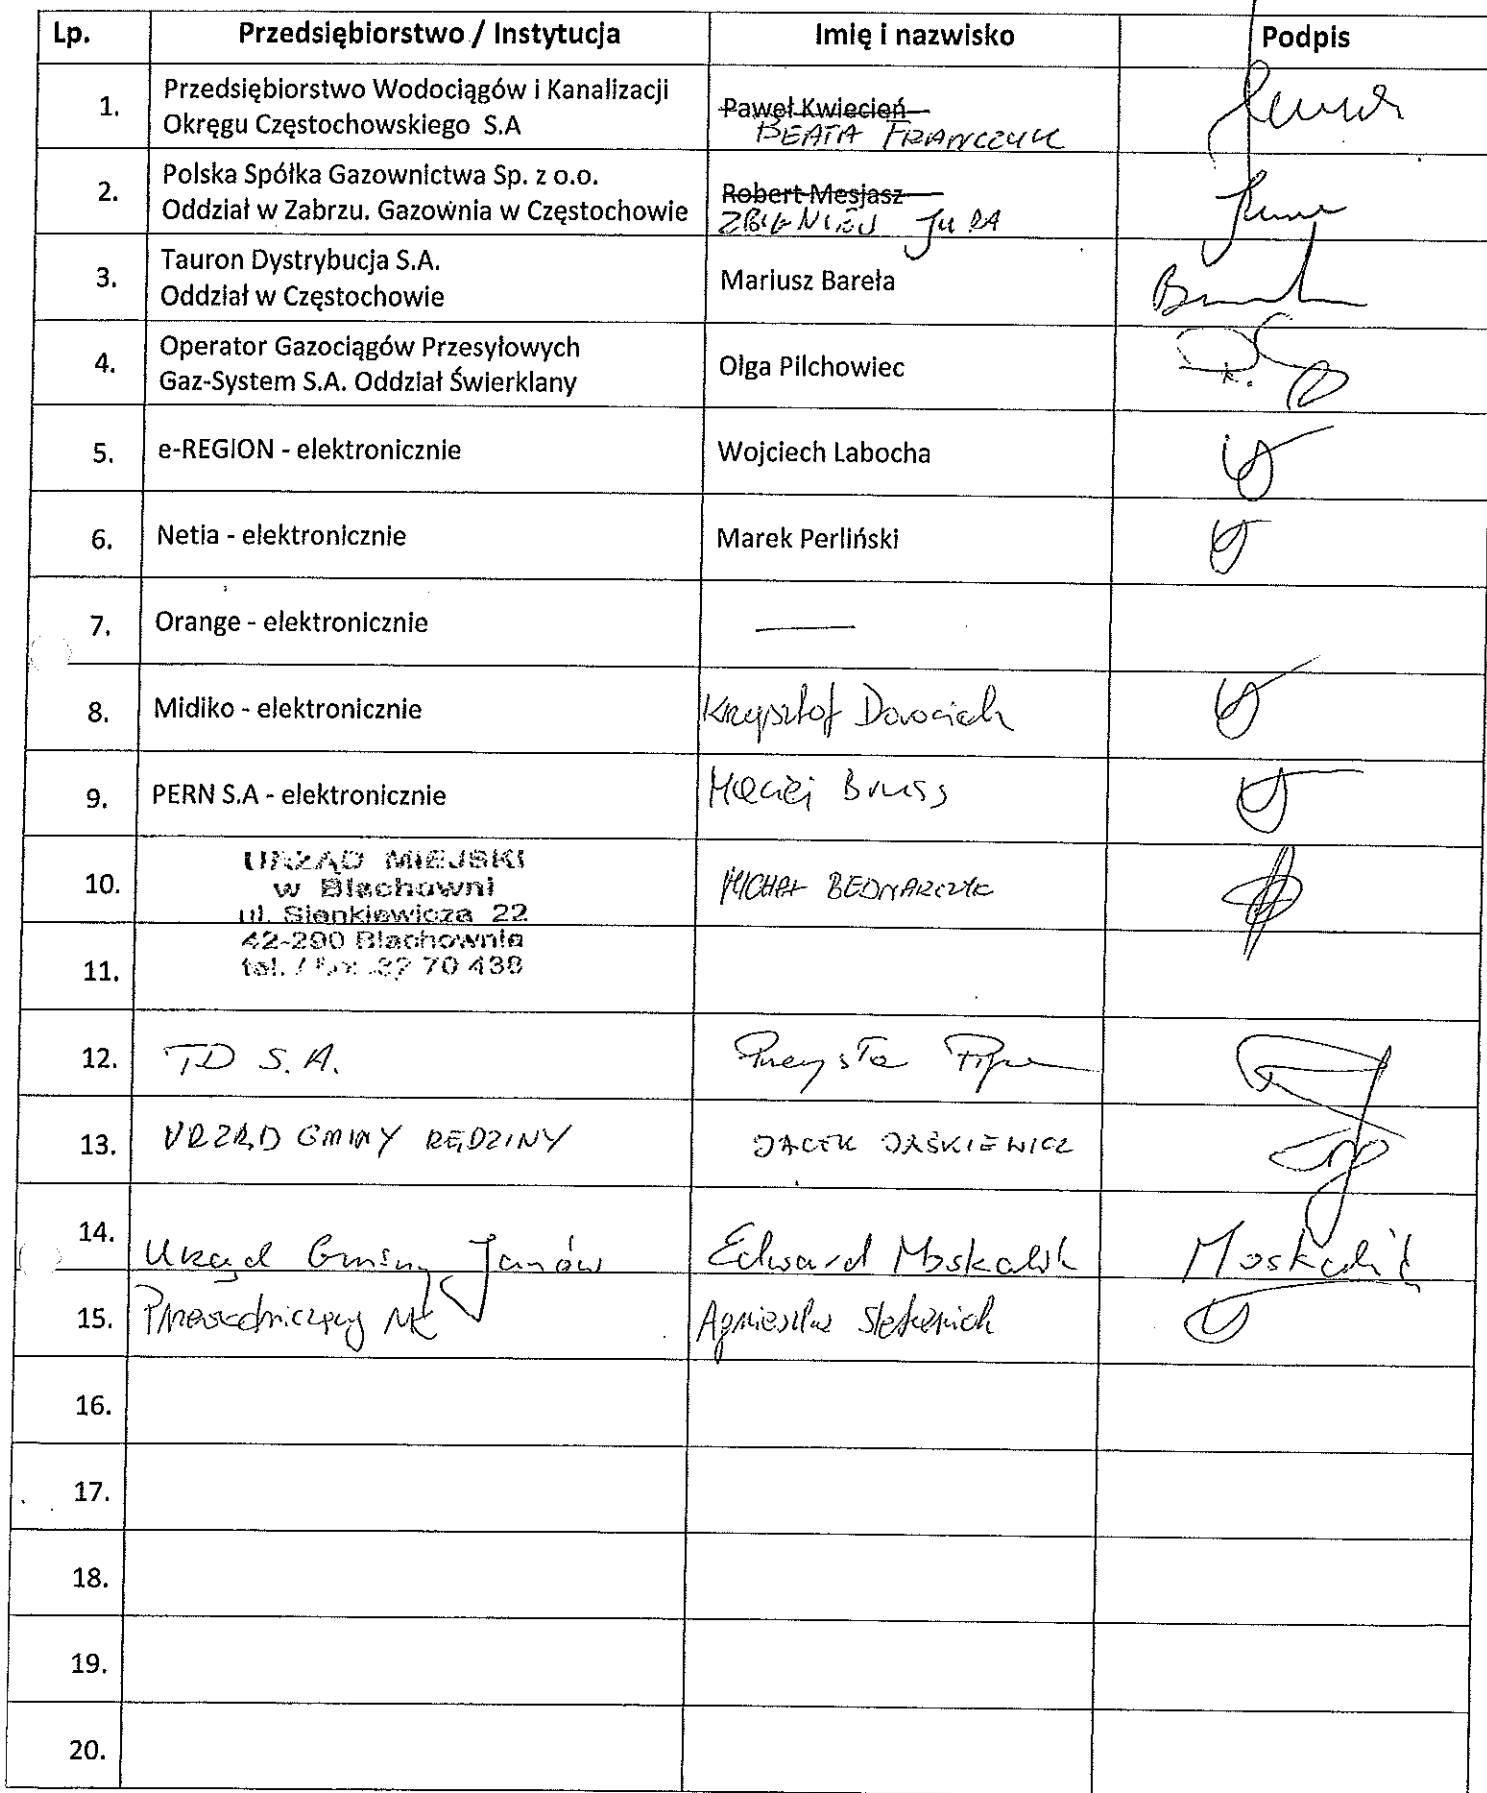 Lp. Przedsiębiorstwo / Instytucja Imię i nazwisko Podpis
1. Przedsiębiorstwo Wodociągów i Kanalizacji
Okręgu Częstochowskiego S.A
Paweł Kwiecień
BEATA FRANCZYK
2. Polska Spółka Gazownictwa Sp. z o.o.
Oddział w Zabrzu. Gazownia w Częstochowie
Robert Mesjasz
ZBIGNIEW JURA
3. Tauron Dystrybucja S.A.
Oddział w Częstochowie
Mariusz Bareła
4. Operator Gazociągów Przesyłowych
Gaz-System S.A. Oddział Świerklany
Olga Pilchowiec
5. e-REGION - elektronicznie Wojciech Labocha
6. Netia - elektronicznie Marek Perliński
7. Orange - elektronicznie —
8. Midiko - elektronicznie Krzysztof Dorociak
9. PERN S.A - elektronicznie Maciej Bruss
10. URZĄD MIEJSKI
w Blachowni
ul. Sienkiewicza 22
42-290 Blachownia
tel. / fax 32 70 438
MICHAŁ BEDNARCZYK
11.
12. TD S.A.
13. URZĄD GMINY RĘDZINY JACEK JAŚKIEWICZ
14. Urząd Gminy Janów Edward Moskalik Moskalik
15. Przewodniczący NK Agnieszka
16.
17.
18.
19.
20.